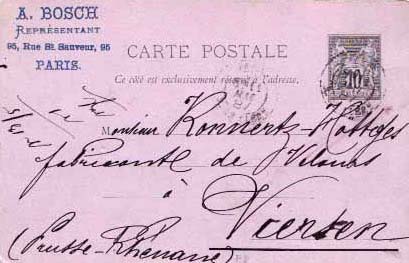 A. BOSCH
REPRÉSENTANT
95, Rue St. Sauveur, 95
PARIS.
CARTE POSTALE
Ce côté est exclusivement réservé à l'adresse.
10
Monsieur Konnertz-Höttges
fabricant de Velours
à
Viersen
(Prusse-Rhénane)